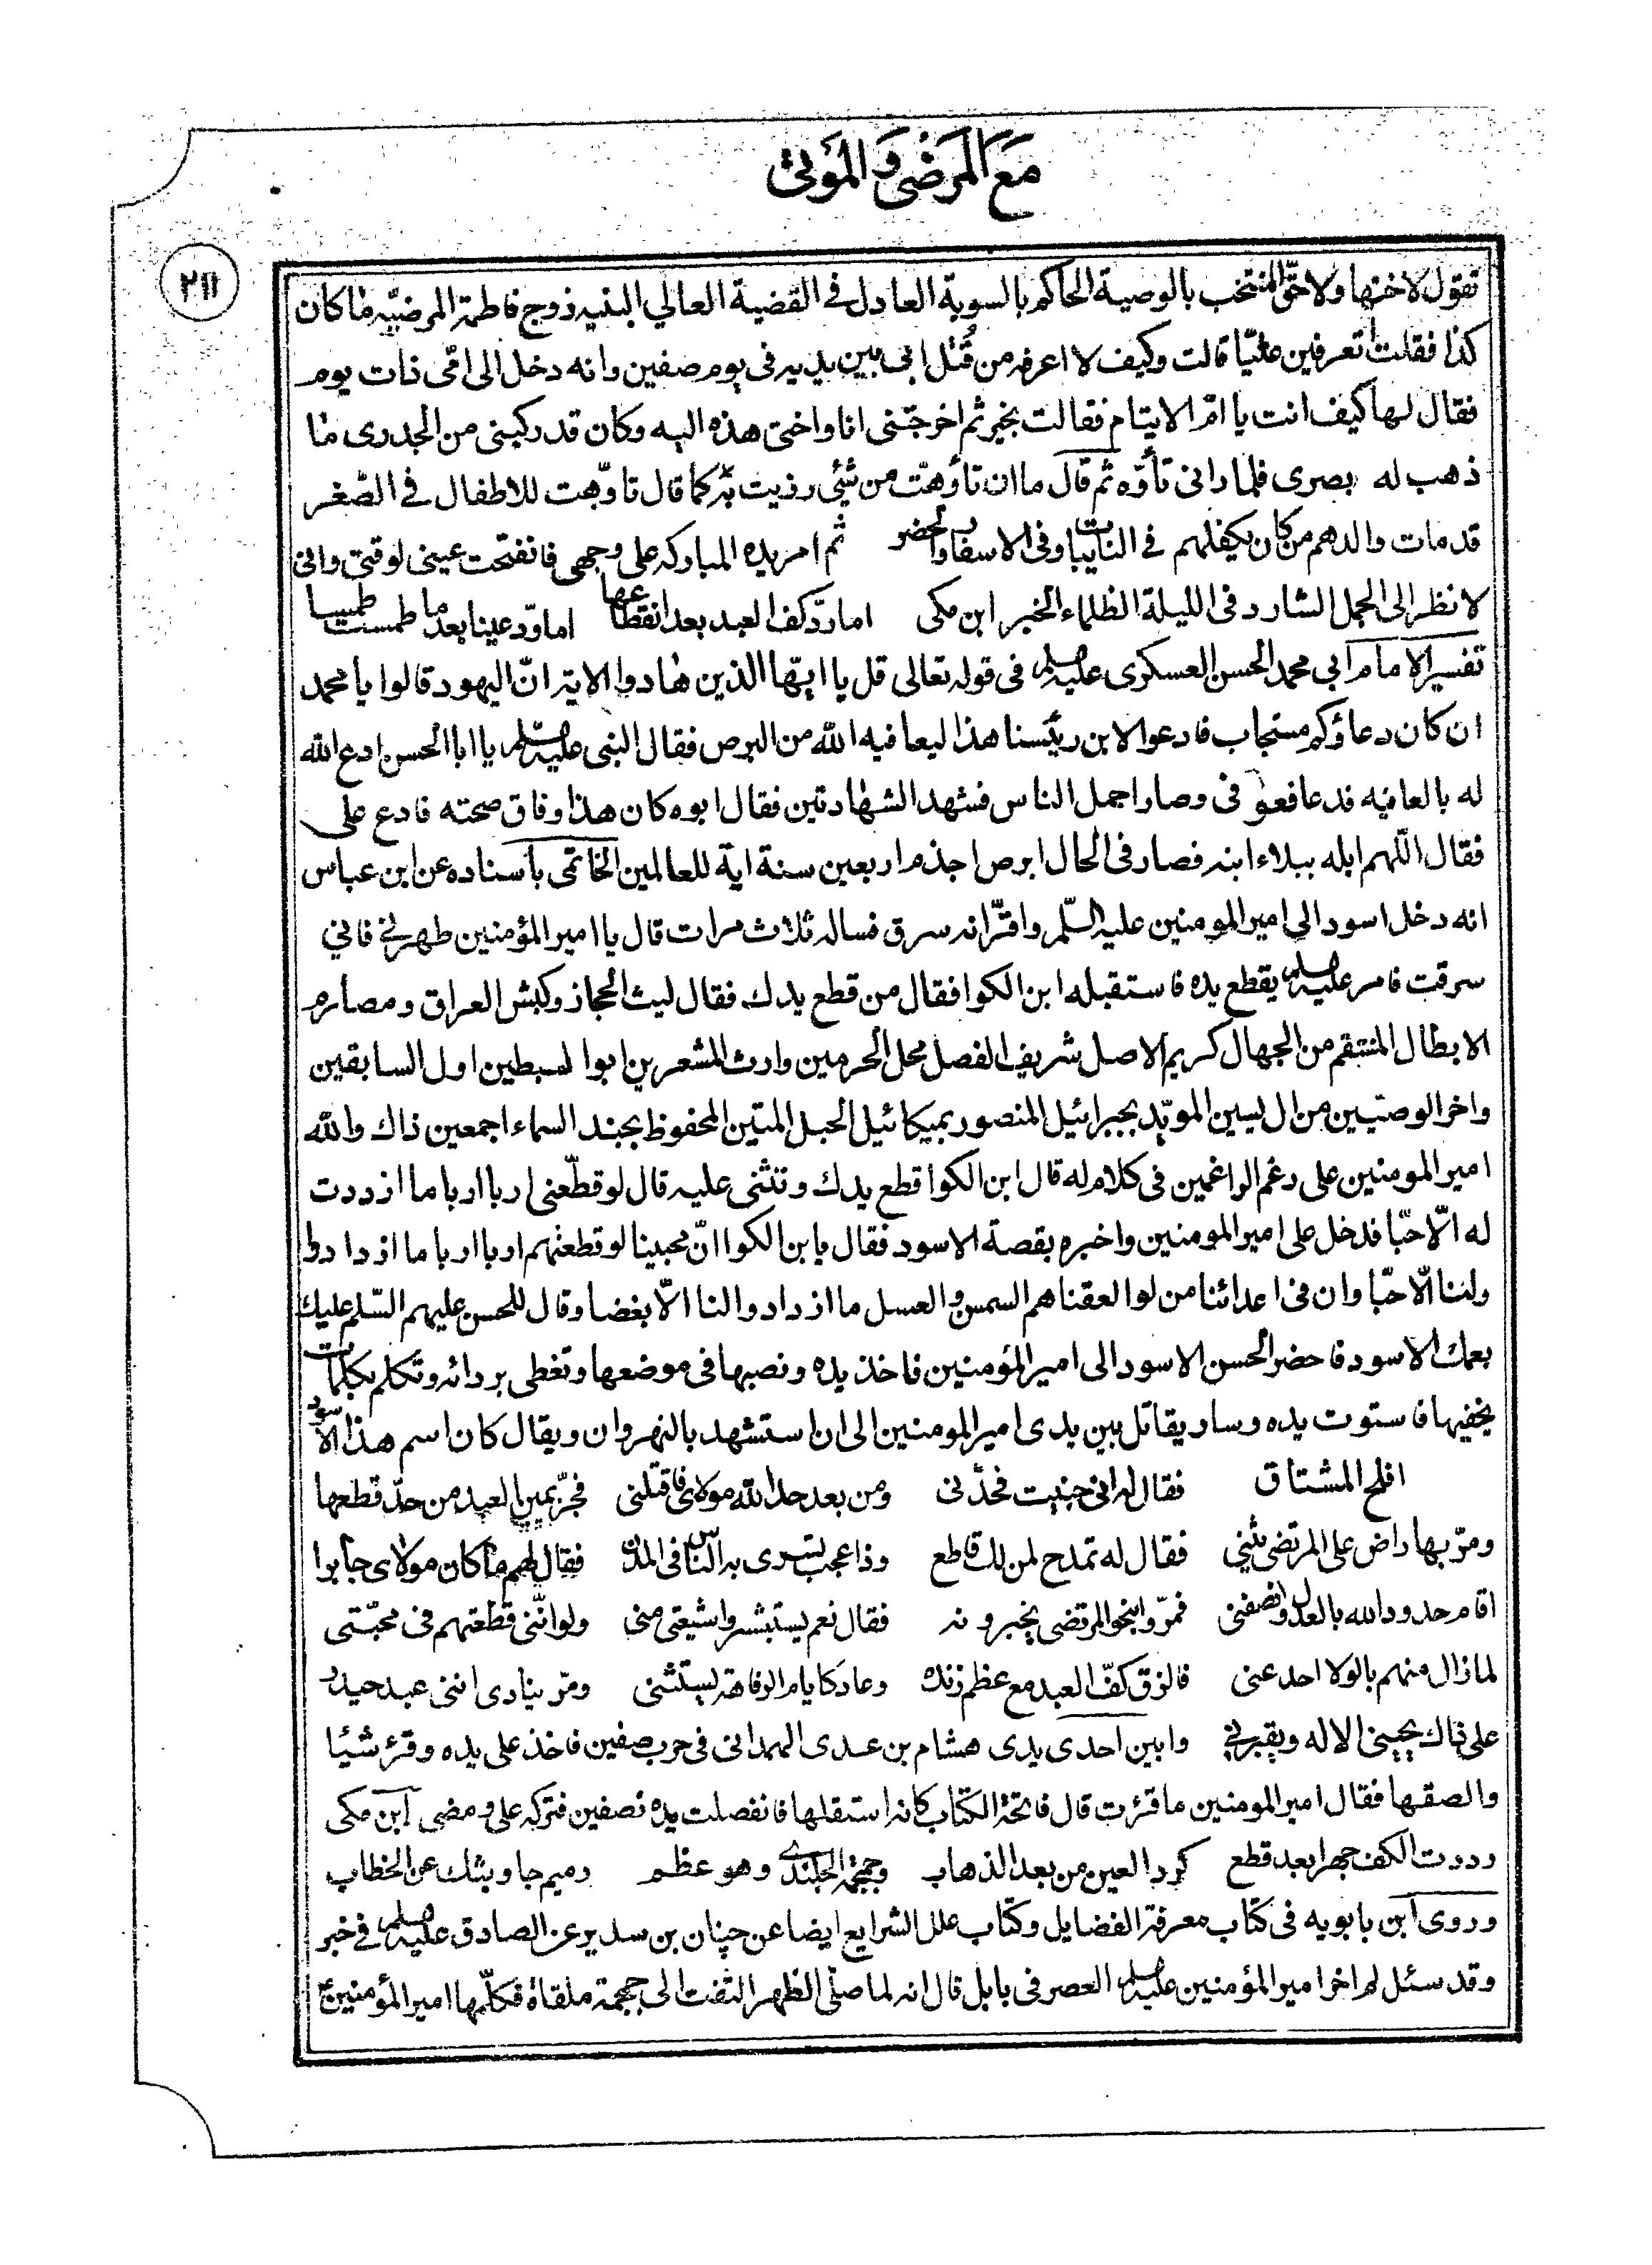 مَعَ المَرَضْى وَ المَوْتىٰ
٢١١
تقول لاختها ولا حق المنتخب بالوصية الحاكم بالسوية العادل فى القضية العالي البنيه زوج فاطمة المرضيّه ما كان
كذا فقلت اتعرفين عليّا قالت وكيف لا اعرفه من قُتل ابى بين يديه فى يوم صفين وانه دخل الى امّى ذات يوم
فقال لها كيف انت يا امّ الايتام فقالت بخير ثم اخرجتنى انا واختى هذه اليه وكان قد ركبنى من الجدرى ما
ذهب له بصرى فلما رانى تأوّه ثم قال ما ان تأوهّت من شئى رزيت به كما قال تاوّهت للاطفال فى الصّغر
قد مات والدهم من كان يكفلهم فى النايبات وفى الاسفار والحضر ثم امر يده المباركه على وجهى فانفتحت عينى لوقتى وانى
لانظر الى الجمل الشارد فى الليلة الظلماء الخبر ابن مكى اما ردّ كف العبد بعد انقطاعها اما ردّ عينا بعد ما طمست طمسا
تفسير الامام ابي محمد الحسن العسكرى عليه السلم فى قوله تعالى قل يا ايّها الذين هادوا الاية انّ اليهود قالوا يا محمد
ان كان دعاؤكم مستجاب فادعوا لابن رئيسنا هذا ليعافيه الله من البرص فقال النبى عليه السلم يا ابا الحسن ادع الله
له بالعافيه فدعا فعوفى وصار اجمل الناس فشهد الشهادتين فقال ابوه كان هذا وفاق صحته فادع على
فقال اللّهم ابله ببلاء ابنه فصار فى الحال ابرص اجذم اربعين سنة اية للعالمين الخاتمى باسناده عن ابن عباس
انه دخل اسود الى امير المومنين عليه السّلم واقرّ انه سرق فساله ثلاث مرات قال يا امير المؤمنين طهرني فاني
سرقت فامر عليه السلم بقطع يده فاستقبله ابن الكوا فقال من قطع يدك فقال ليث الحجاز وكبش العراق ومصارم
الابطال المنتقم من الجهال كريم الاصل شريف الفصل محل الحرمين وارث المشعرين ابوا لسبطين اول السابقين
واخر الوصيّين من ال يسين المويّد بجبرائيل المنصور بميكائيل الحبل المتين المحفوظ بجند السماء اجمعين ذاك والله
امير المومنين على رغم الراغمين فى كلام له قال ابن الكوا قطع يدك وتثنى عليه قال لو قطّعنى اربا اربا ما ازددت
له الّا حبّا فدخل على امير المومنين واخبره بقصة الاسود فقال يا بن الكوا انّ محبينا لو قطعتهم اربا اربا ما ازدادوا
ولنا الّا حبّا وان فى اعدائنا من لو العقناهم السمن والعسل ما ازدادوا لنا الّا بغضا وقال للحسن عليهم السّلم عليك
بعمك الاسود فاحضر الحسن الاسود الى امير المؤمنين فاخذ يده ونصبها فى موضعها وتغطى بردائه وتكلم بكلمات
يخفيها فاستوت يده وسار يقاتل بين يدى امير المومنين الى ان استشهد بالنهروان ويقال كان اسم هذا الاسود
افلح المشتاق فقال له انى جنيت فحدّنى ومن بعد حد الله مولاى فاقتلنى فجرّ يمين العبد من حدّ قطعها
ومرّ بها راض على المرتضى يثني فقال له تمدح لمن لك قاطع وذا عجب يسرى به الناس فى المدن فقال لهم ما كان مولاى جايرا
اقام حدود الله بالعدل وانصفنى فمرّوا بنحو المرتضى يخبرونه فقال نعم يستبشروا شيعتى منى ولو انّنى قطعتهم فى محبّتى
لما زال منهم بالولا احد عنى فالزق كفّ العبد مع عظم زنده وعاد كايام الرفاهة يستثنى ومرّ ينادى اننى عبد حيدر
على ذاك يحيينى الاله ويقبرني وابين احدى يدى هشام بن عدى الهمدانى فى حرب صفين فاخذ على يده وقرء شيئا
والصقها فقال امير المومنين ما قرءت قال فاتحة الكتاب كانه استقلها فانفصلت يده نصفين فتركه على ومضى ابن مكى
رددت الكف جهرا بعد قطع كرد العين من بعد الذهاب وجمجمة الجلندى وهو عظم رميم جاوبتك عن الخطاب
وروى ابن بابويه فى كتاب معرفة الفضايل وكتاب علل الشرايع ايضا عن حنان بن سدير عن الصادق عليه السلم فى خبر
وقد سئل لم اخر امير المؤمنين عليه السلم العصر فى بابل قال انه لما صلّى الظهر التفت الى جمجمة ملقاة فكلّمها امير المؤمنين ع